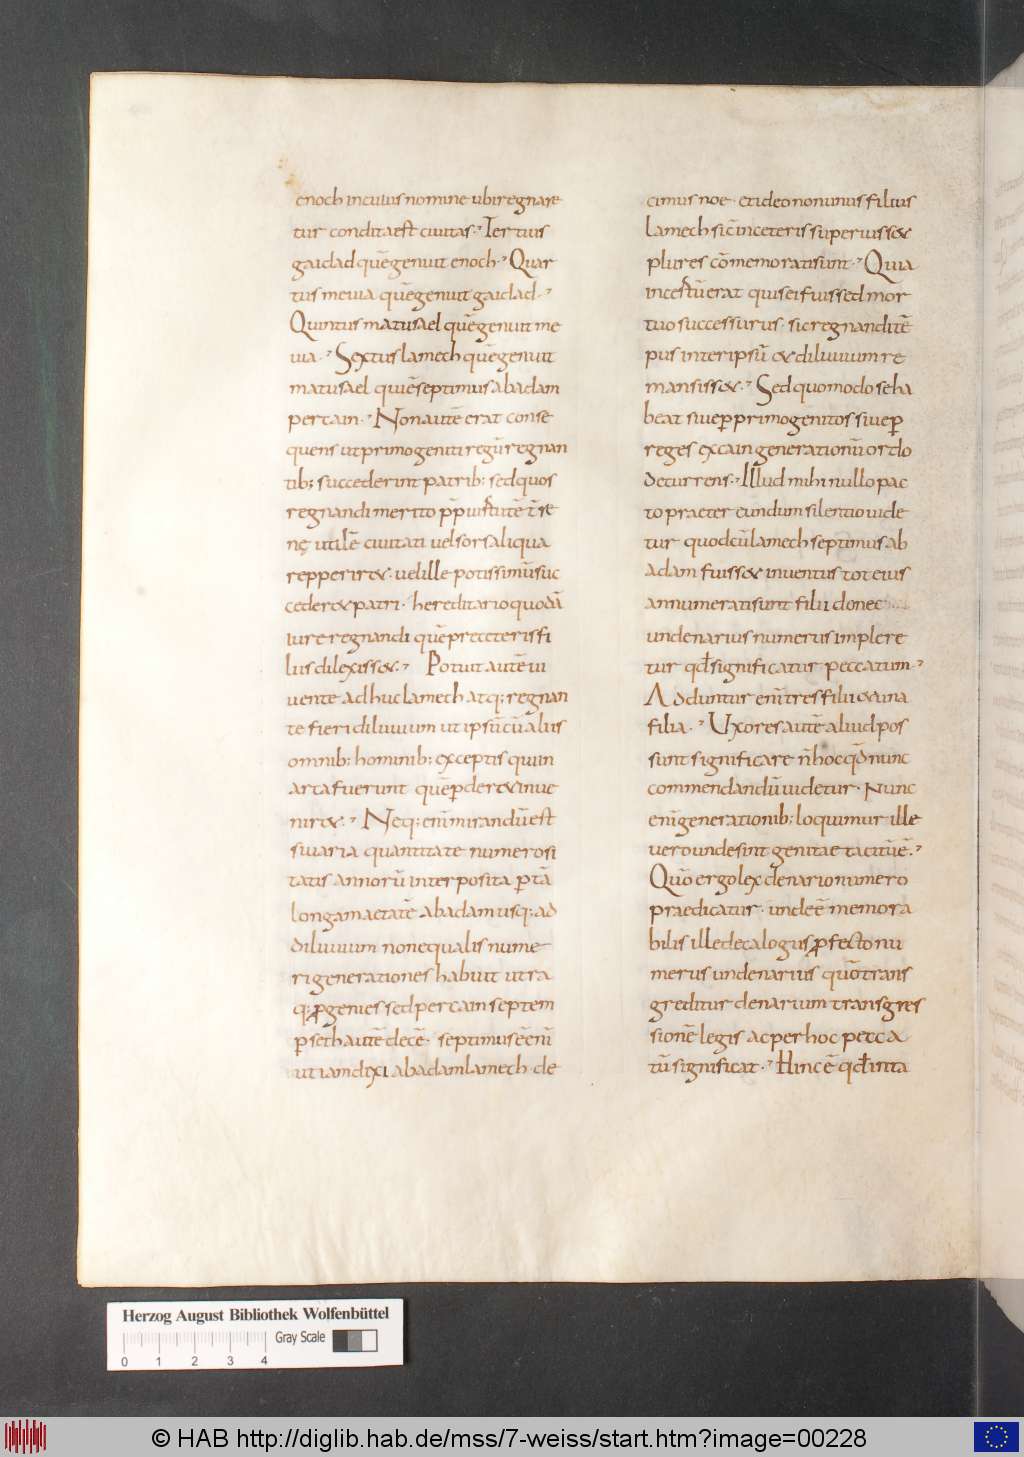 enoch incuius nomine ubi regnare
tur condita est ciuitas. Tertius
gaidad quē genuit enoch. Quar
tus meuia quē genuit gaidad.
Quintus matusael quē genuit me
uia. Sextus lamech quē genuit
matusael qui ē septimus ab adam
per cain. Non autē erat conse
quens ut primogeniti regū regnan
tib; succederint patrib; sed quos
regnandi merito
utilē ciuitati uel sors aliqua
repperir& uel ille potissimū suc
ceder& patri. hereditario quodā
iure regnandi quē pre ceteris fi
lus dilexiss&. Potuit autē ui
uente adhuc lamech atq; regnan
te fieri diluuium ut ipsū cū aliis
omnib; hominib; exceptis qui in
arca fuerunt quē perder& inue
nir&. Neq; enī mirandū est
si uaria quantitate numerosi
tatis annorū interposita p̄ tā
longam aetatē ab adam usq; ad
diluuium non equalis nume
ri generationes habuit utra
q; ꝓgenies sed per cain septem
p̄ seth autē decē. septimus ē enī
ut iam dixi ab adam lamech. de
cimus noe. et ideo non unus filius
lamech sic̄ in ceteris superius s&
plures cōmemorati sunt. Quia
incertū erat quis ei fuissed mor
tuo successurus. sic regnandi tē
pus inter ipsū & diluuium re
mansiss&. Sed quomodo se ha
beat siue p̄ primogenitos siue p̄
reges ex cain generationū ordo
decurrens. Illud mihi nullo pac
to praetereundum silentio uide
tur quod cū lamech septimus ab
adam fuiss& inuentus tot eius
annumerati sunt filii donec
undenarius numerus implere
tur qđ significatur peccatum.
Adduntur enī tres filii & una
filia. Uxores autē aliud pos
sunt significare n̄ hoc qđ nunc
commendandū uidetur. Nunc
enī generationib; loquimur ille
uero unde sint genitae tacitū ē.
Quō ergo lex denario numero
praedicatur. unde ē memora
bilis ille decalogus ꝓfecto nu
merus undenarius quō trans
greditur denarium transgres
sionē legis ac per hoc pecca
tū significat. Hinc ē qđ in ta
Herzog August Bibliothek Wolfenbüttel
Gray Scale
0 1 2 3 4
© HAB http://diglib.hab.de/mss/7-weiss/start.htm?image=00228